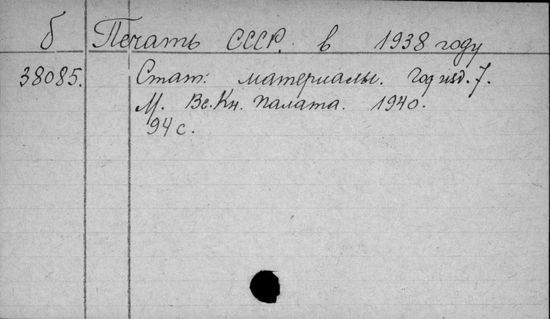 б Печать СССР. в 1938 году
38085. Стат: материалы. Год изд. 7.
М. Вс. Кн. Палата. 1940.
94 с.